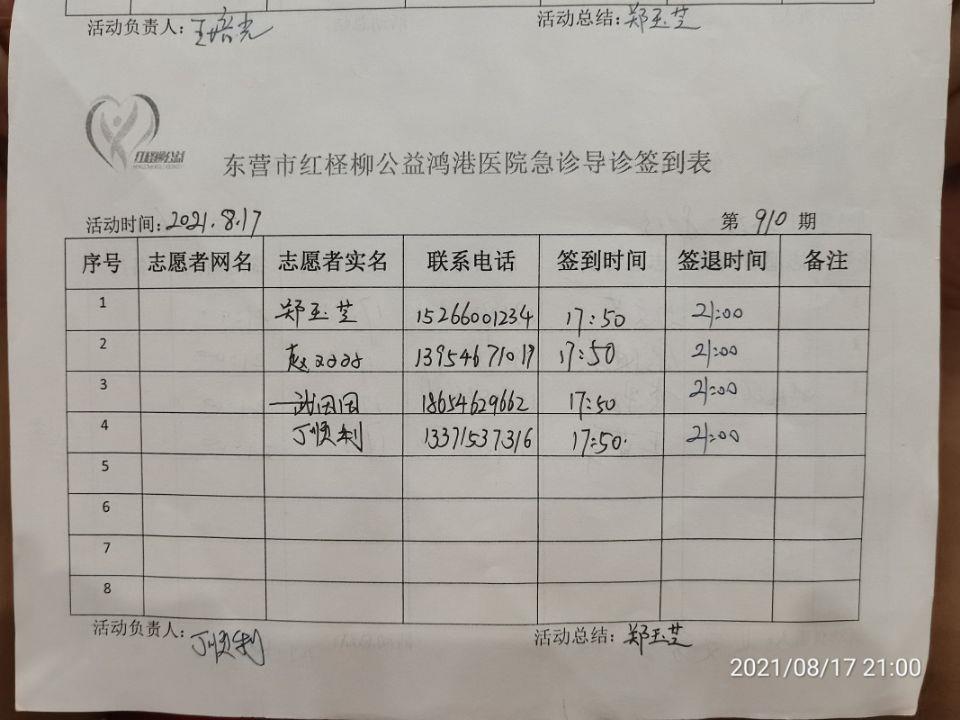 活动负责人：王培光 活动总结：郑玉芝
红柽柳公益
东营市红柽柳公益鸿港医院急诊导诊签到表
活动时间：2021.8.17 第 910 期
序号 志愿者网名 志愿者实名 联系电话 签到时间 签退时间 备注
1 郑玉芝 15266001234 17:50 21:00
2 赵 13954671019 17:50 21:00
3 武田田 18654629662 17:50 21:00
4 丁顺利 13371537316 17:50 21:00
5
6
7
8
活动负责人：丁顺利 活动总结：郑玉芝
2021/08/17 21:00